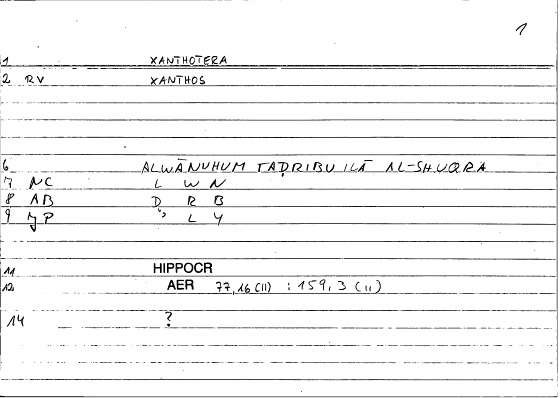 1
1 XANTHOTERA
2 RV XANTHOS
6 ALWĀNUHUM TAḌRIBU ILĀ AL-SHUQRA
7 NC L W N
8 AB Ḍ R B
9 JP ʾ L Y
11 HIPPOCR
12 AER 77,16 (II) : 159,3 (II)
14 ?